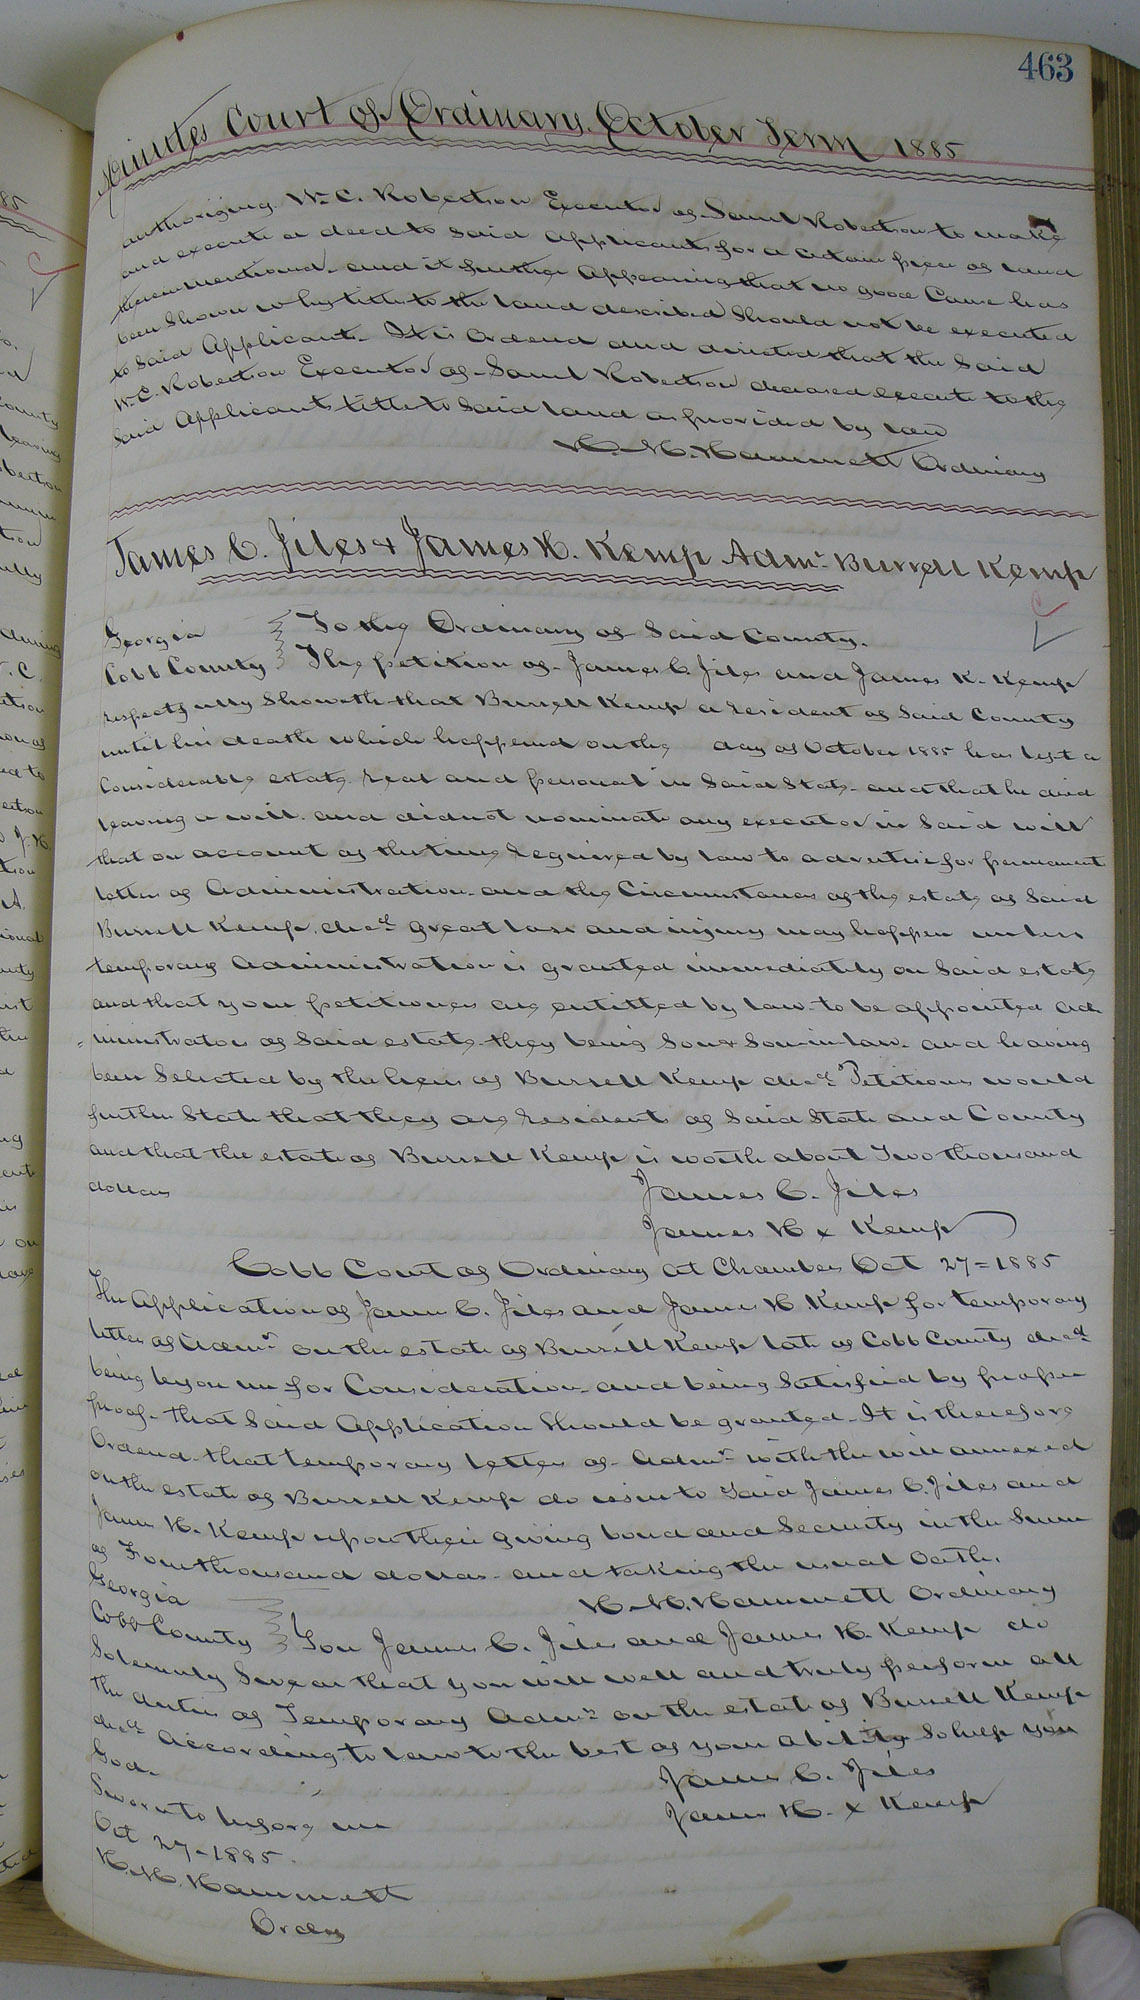 463
Minutes Court of Ordinary October Term 1885
authorizing W. C. Robertson Executor of Saml Robertson to make
and execute a deed to said applicants for a certain piece of land
therein mentioned and it further appearing that no good Cause has
been shown why title to the land described should not be executed
to said Applicants. It is Ordered and directed that the Said
W. C. Robertson Executor of Saml Robertson deceased execute to the
said Applicants title to said land as provided by law
H. M. Hammett Ordinary
James C. Jiles & James H. Kemp Admr. Burrell Kemp
Georgia To the Ordinary of Said County.
Cobb County The petition of James C. Jiles and James H. Kemp
respectfully Showeth that Burrell Kemp a resident of Said County
until his death which happend on the day of October 1885 has left a
Considerable estate real and personal in Said State and that he died
leaving a will and did not nominate any executor in Said will
that on account of the time required by law to advertise for permanent
letters of Administration and the Circumstances of the estate of Said
Burrell Kemp decd great loss and injury may happen unless
temporary Administration is granted immediately on Said estate
and that your petitioners are entitled by law to be appointed ad-
ministrators of Said estate they being Son & Son-in-law and having
been Selected by the heirs of Burrell Kemp decd Petitioners would
further State that they are residents of Said State and County
and that the estate of Burrell Kemp is worth about Two thousand
dollars
James C. Jiles
James H x Kemp
Cobb Court of Ordinary at Chambers Oct 27=1885
The Application of James C. Jiles and James H. Kemp for temporary
letters of Admr on the estate of Burrell Kemp late of Cobb County decd
being before me for Consideration and being Satisfied by proper
proof that Said Application Should be granted. It is therefore
Ordered that temporary letters of Admr with the will annexed
on the estate of Burrell Kemp do issue to Said James C. Jiles and
James H. Kemp upon their giving bond and Security in the Sum
of Four thousand dollars and taking the usual Oath.
H. M. Hammett Ordinary
Georgia
Cobb County You James C. Jiles and James H. Kemp do
Solemnly Swear that you will well and truly perform all
the duties of Temporary Admrs on the estate of Burrell Kemp
decd According to law to the best of your ability So help you
God.
James C. Jiles
James H. x Kemp
Sworn to before me
Oct 27-1885.
H. M. Hammett
Ordy